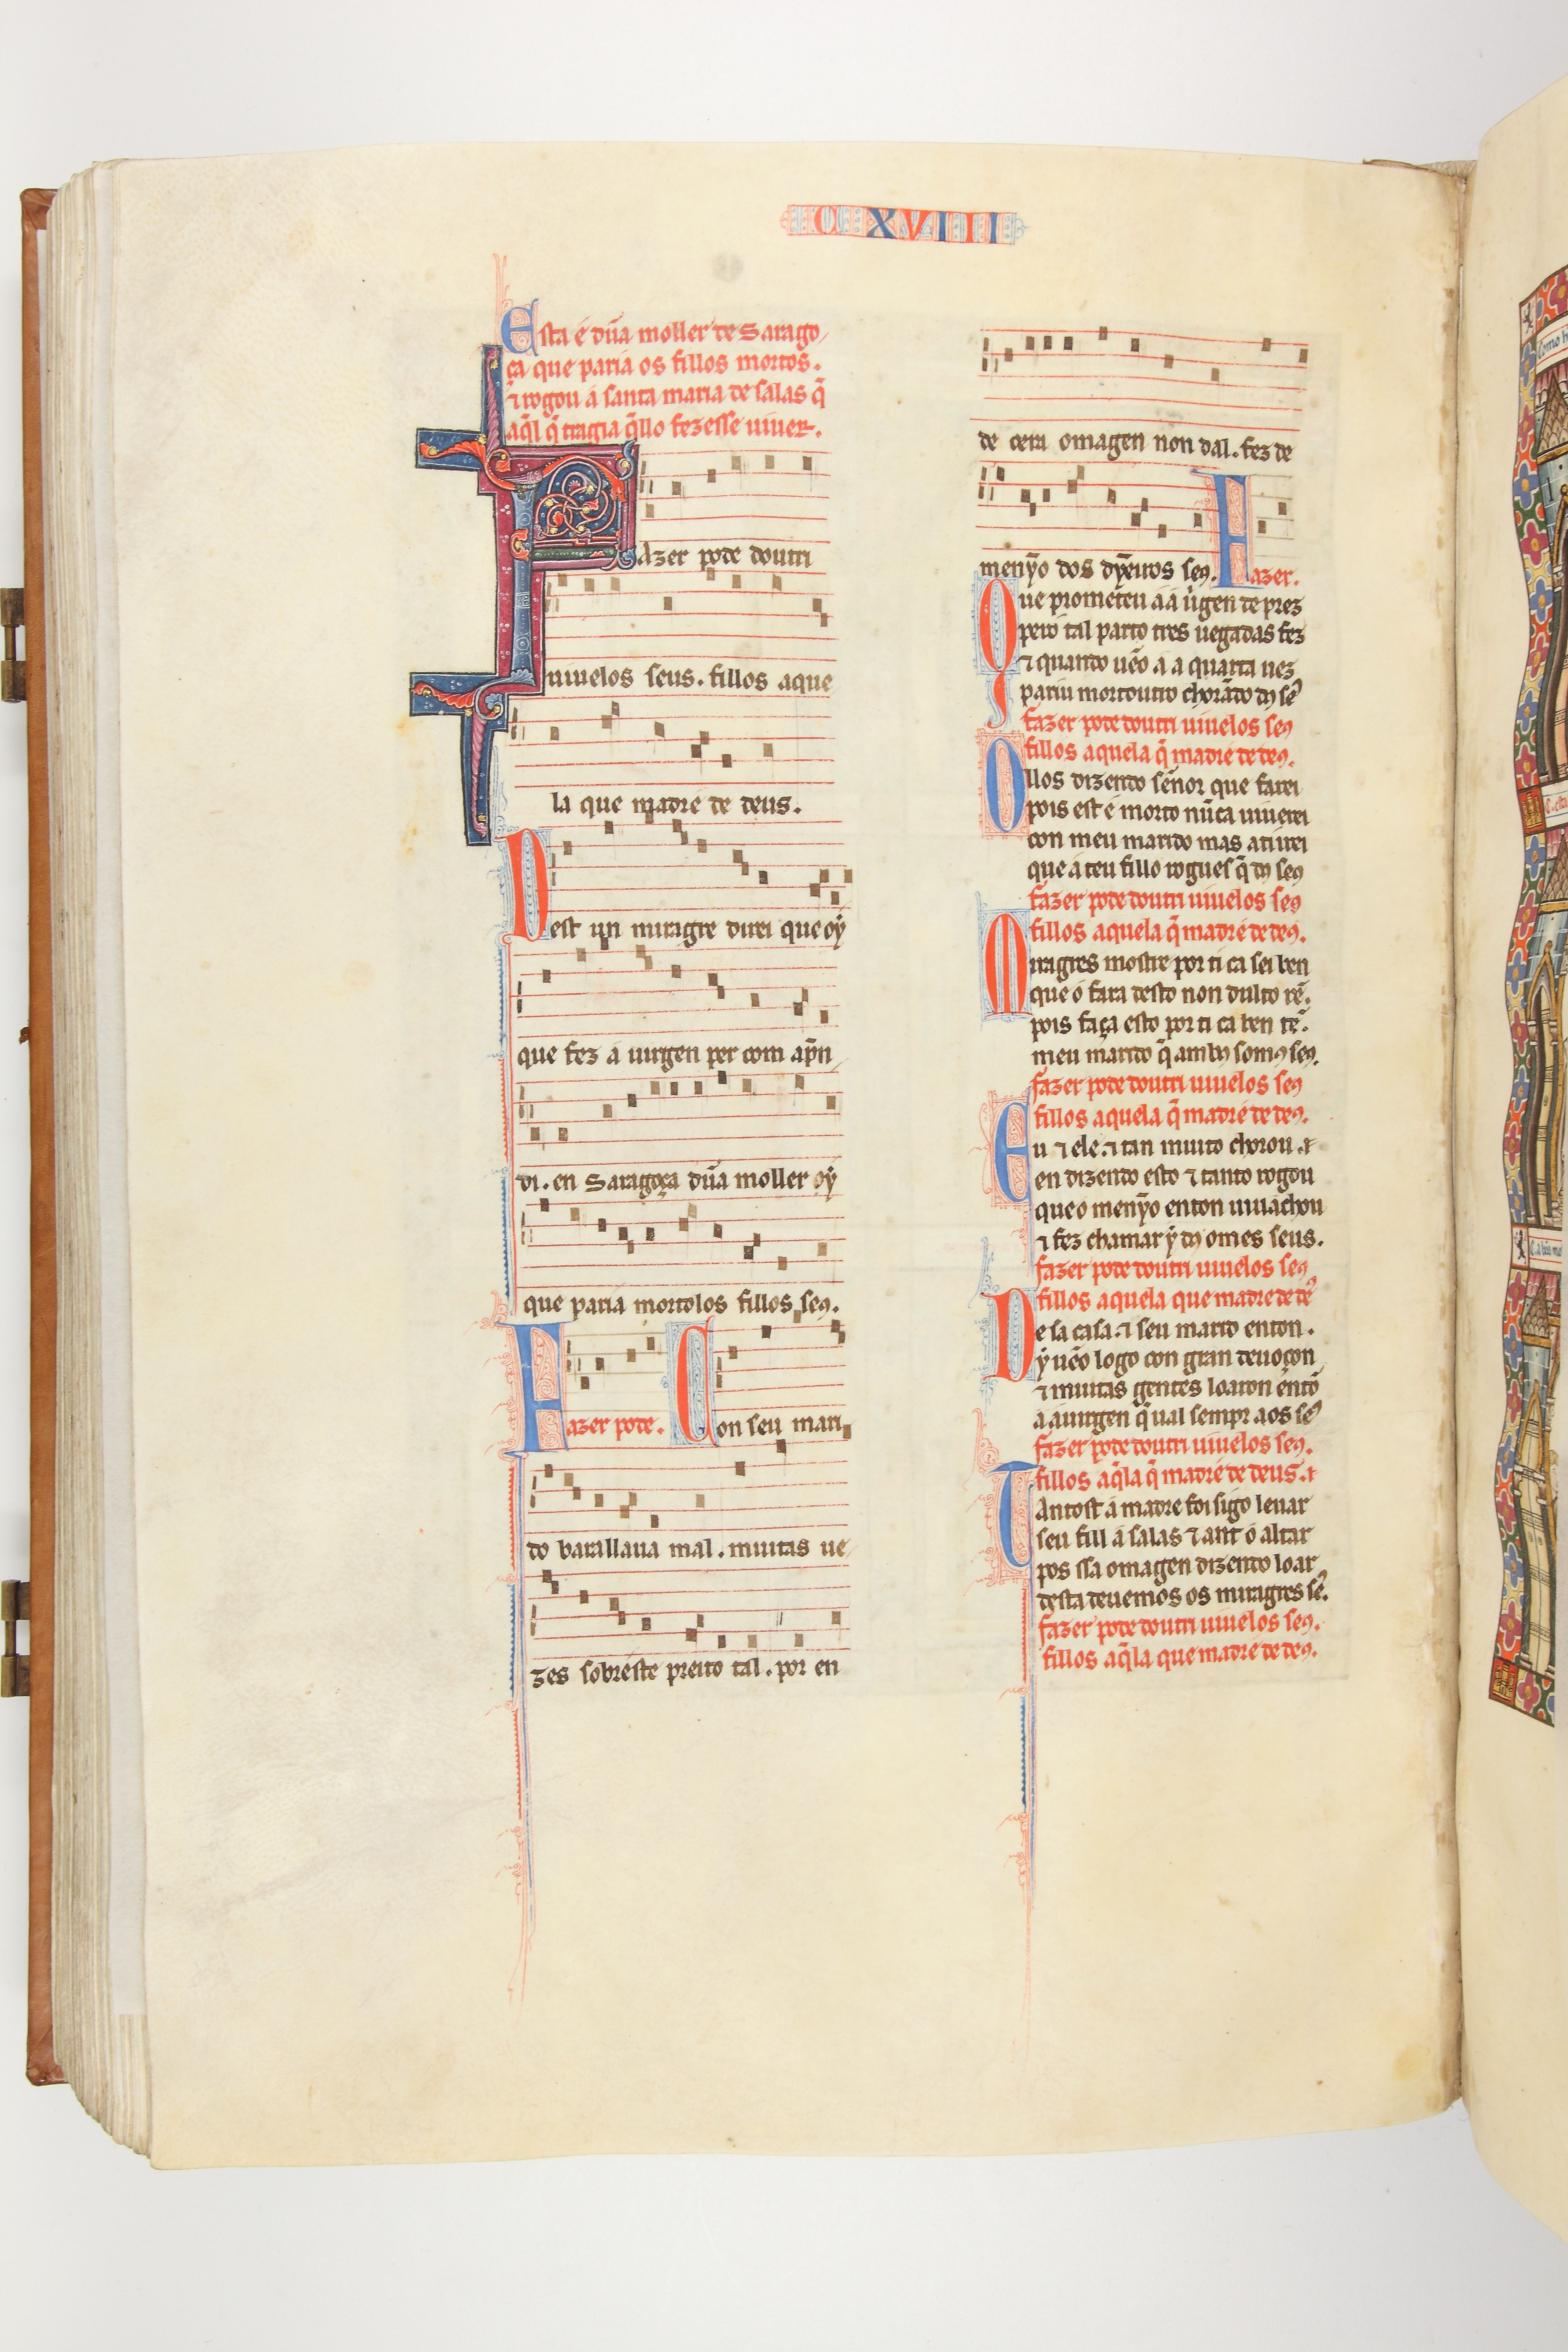 CXVIII
Esta é dũa moller de Sarago
ça que paria os fillos mortos.
⁊ rogou á santa maria de salas q̃
aq̃l q̃ tragia q̃llo fezesse uiuer.
Fazer pode doutri
uiuelos seus. fillos aque
la que madre de deus.
Dest un miragre direi que oý
que fez a uirgen per com apñ
di. en Saragoça dũa moller oý
que paria mortolos fillos seꝯ.
Fazer pode. Con seu mari
do barallaua mal. muitas ue
zes sobreste preito tal. por en
de cera omagen non dal. fez de
menỹo dos dỹeiros seꝯ. Fazer.
Que prometeu á á uirgen de prez
pero tal parto tres uegadas fez
⁊ quando uẽo á a quarta uez
pariu mortoutro chorãdo dꝯ sẽꝰ
fazer pode doutri uiuelos seꝯ
fillos aquela q̃ madre de deꝯ.
Ollos dizendo señor que farei
pois est é morto nũca uiuerei
con meu marido mas ati irei
que a teu fillo rogues q̃ dꝯ seꝯ
fazer pode doutri uiuelos seꝯ
fillos aquela q̃ madré de deꝯ.
Miragres mostre por ti ca sei ben
que ó fara desto non dulto rẽ.
pois faça esto por ti ca ben tẽ.
meu marido q̃ ambꝯ somꝯ seꝯ.
fazer pode doutri uiuelos seꝯ
fillos aquela q̃ madré de deꝯ.
Eu ⁊ ele. ⁊ tan muito chorou. ⁊
en dizendo esto ⁊ tanto rogou
queo menỹo enton uiuachou
⁊ fez chamar ý dꝯ omes seus.
fazer pode doutri uiuelos seꝯ
fillos aquela que madre de deꝰ
De sa casa. ⁊ seu marid enton.
ý uẽo logo con gran deuoçon
⁊ muitas gentes loaron entõ
á áuirgen q̃ ual sempr aos seꝰ
fazer pode doutri uiuelos seꝯ.
fillos aq̃la q̃ madré de deus. ⁊
Tantost á madre foi sigo leuar
seu fill á salas ⁊ ant ó altar
pos ssa omagen dizendo loar
desta deuemos os miragres seꝰ.
fazer pode doutri uiuelos seꝯ.
fillos aq̃la que madre de deꝯ.